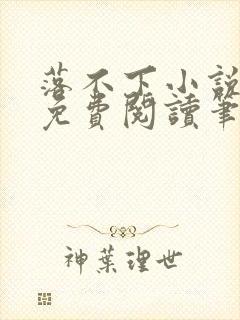 落不下小說
免費閱讀筆
神葉理世